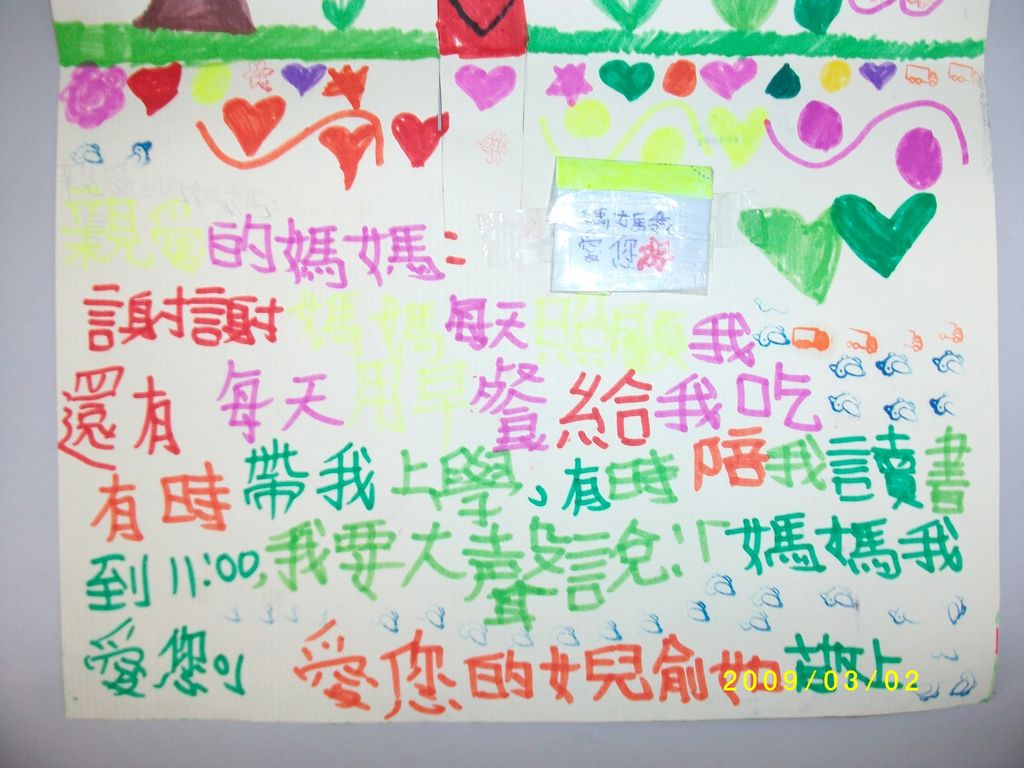 媽媽我
愛您
親愛的媽媽:
謝謝媽媽每天照顧我
還有每天用早餐給我吃
有時帶我上學,有時陪我讀書
到11:00,我要大聲說:「媽媽我
愛您」 愛您的女兒俞如 上
2009/03/02